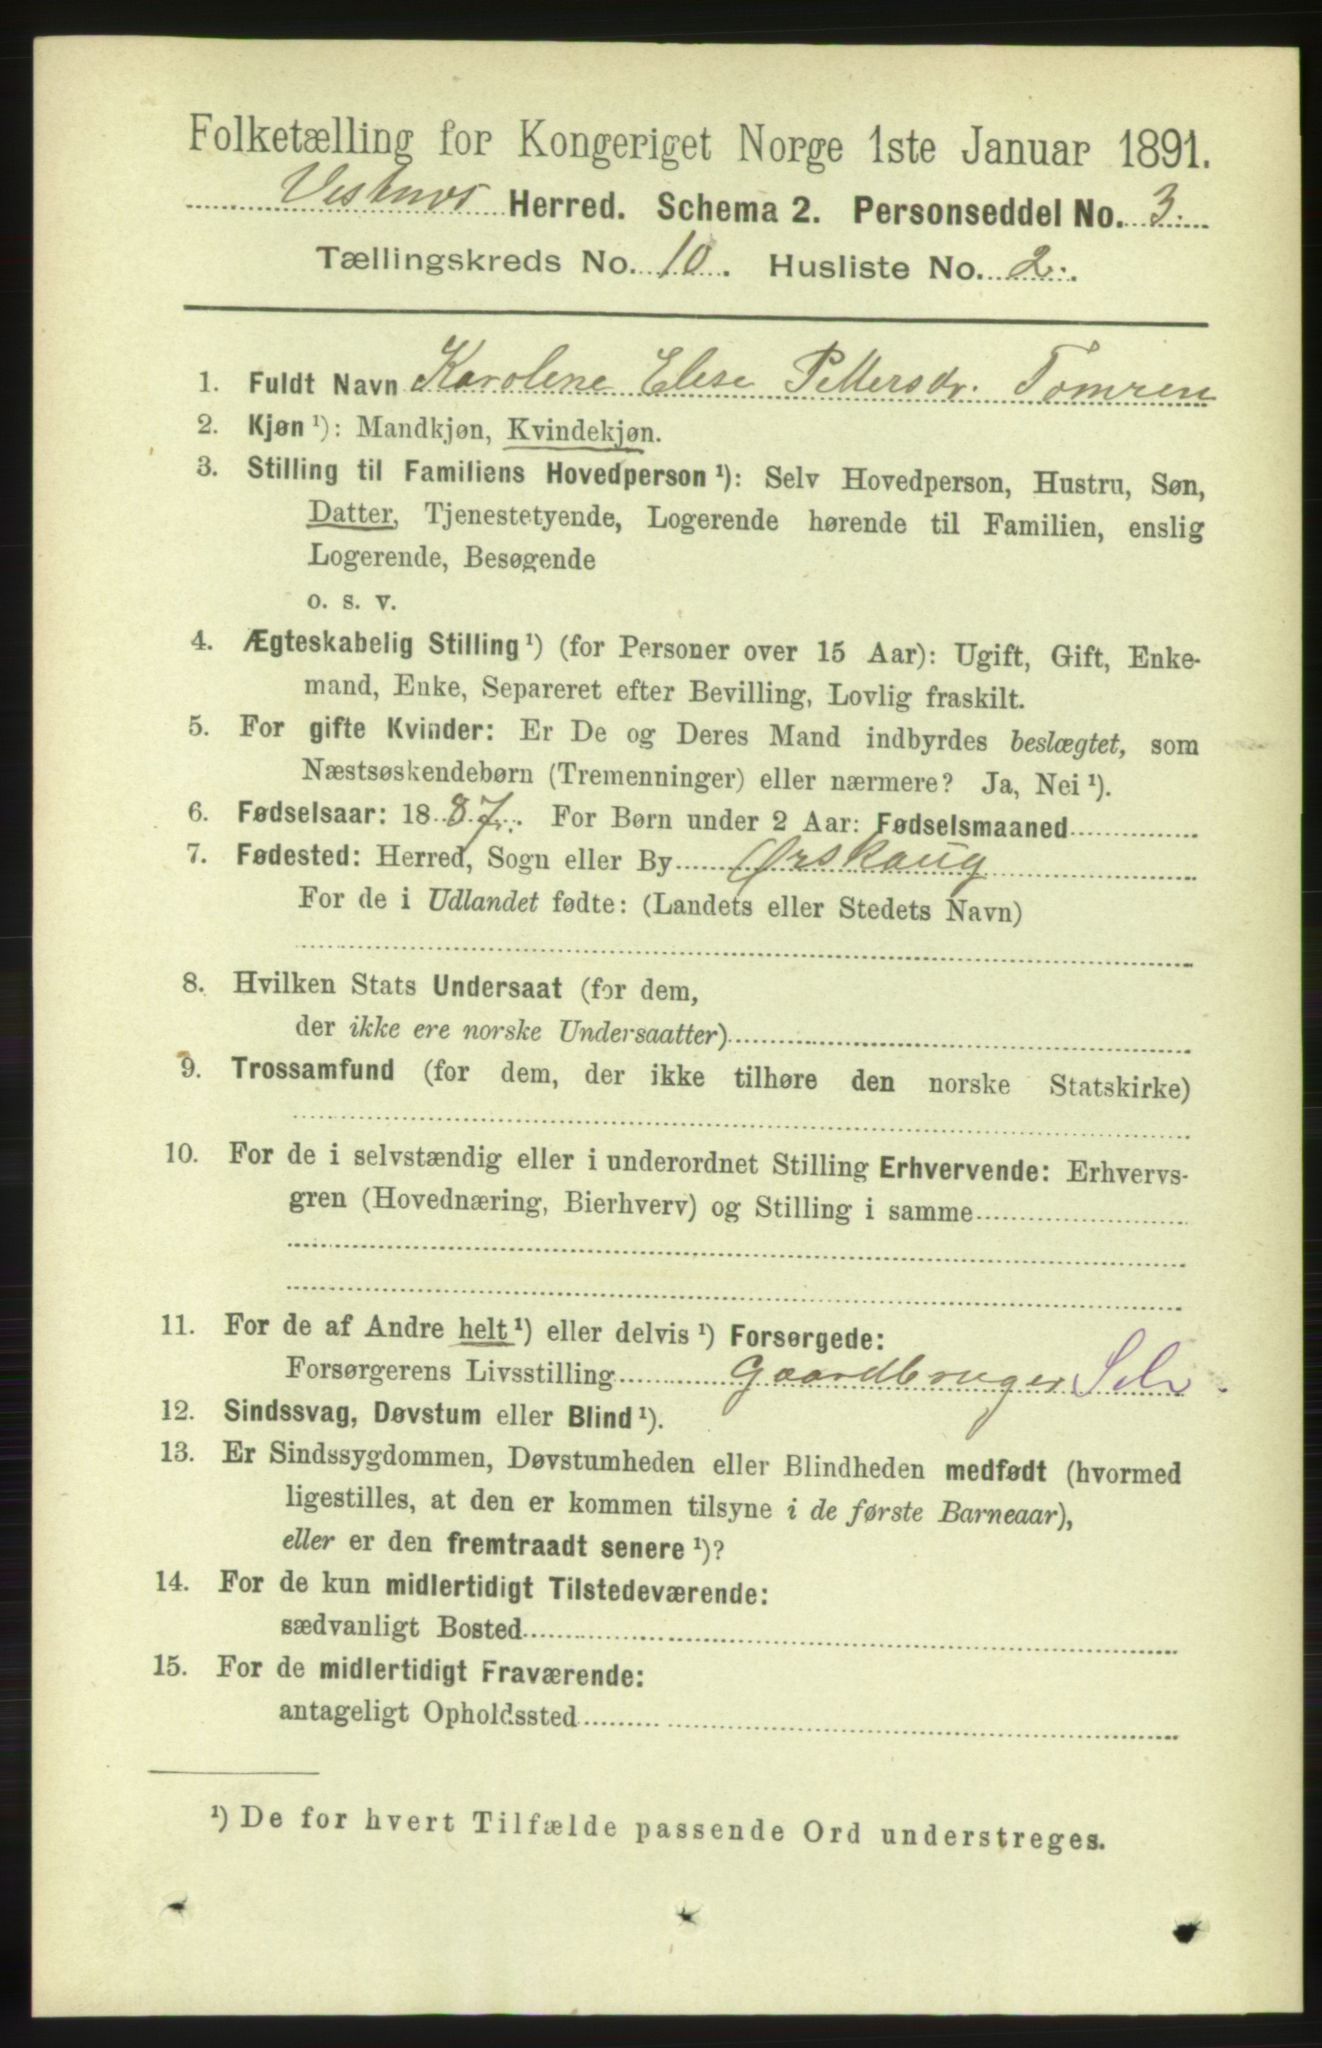 Folketælling for Kongeriget Norge 1ste Januar 1891.
Vestnes Herred. Schema 2. Personseddel No. 3.
Tællingskreds No. 10. Husliste No. 2.
1. Fuldt Navn Karolene Elese Pettersdr. Tomren
2. Kjøn ¹): Mandkjøn, Kvindekjøn.
3. Stilling til Familiens Hovedperson ¹): Selv Hovedperson, Hustru, Søn,
Datter, Tjenestetyende, Logerende hørende til Familien, enslig
Logerende, Besøgende
o. s. v.
4. Ægteskabelig Stilling ¹) (for Personer over 15 Aar): Ugift, Gift, Enke-
mand, Enke, Separeret efter Bevilling, Lovlig fraskilt.
5. For gifte Kvinder: Er De og Deres Mand indbyrdes beslægtet, som
Næstsøskendebørn (Tremenninger) eller nærmere? Ja, Nei ¹).
6. Fødselsaar: 1887. For Børn under 2 Aar: Fødselsmaaned
7. Fødested: Herred, Sogn eller By Ørskaug
For de i Udlandet fødte: (Landets eller Stedets Navn)
8. Hvilken Stats Undersaat (for dem,
der ikke ere norske Undersaatter)
9. Trossamfund (for dem, der ikke tilhøre den norske Statskirke)
10. For de i selvstændig eller i underordnet Stilling Erhvervende: Erhvervs-
gren (Hovednæring, Bierhverv) og Stilling i samme
11. For de af Andre helt ¹) eller delvis ¹) Forsørgede:
Forsørgerens Livsstilling Gaardbruger Selv.
12. Sindssvag, Døvstum eller Blind ¹).
13. Er Sindssygdommen, Døvstumheden eller Blindheden medfødt (hvormed
ligestilles, at den er kommen tilsyne i de første Barneaar),
eller er den fremtraadt senere ¹)?
14. For de kun midlertidigt Tilstedeværende:
sædvanligt Bosted
15. For de midlertidigt Fraværende:
antageligt Opholdssted
¹) De for hvert Tilfælde passende Ord understreges.